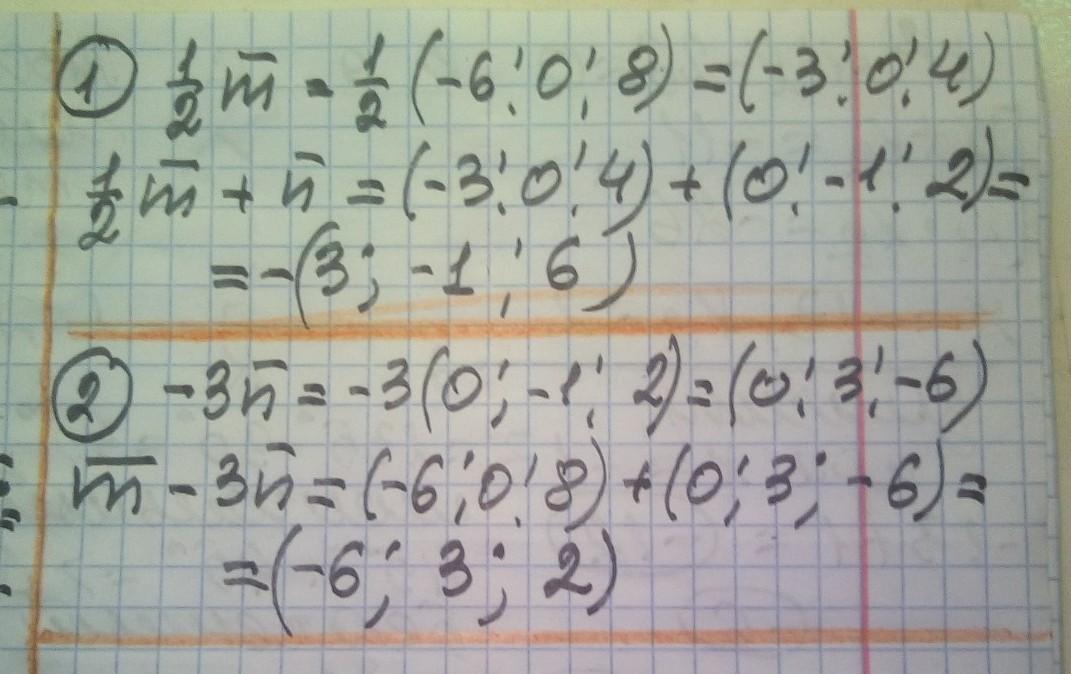 ① 1/2 m̅ = 1/2 (-6; 0; 8) = (-3; 0; 4)
1/2 m̅ + n̅ = (-3; 0; 4) + (0; -1; 2) =
= -(3; -1; 6)
② -3n̅ = -3(0; -1; 2) = (0; 3; -6)
m̅ - 3n̅ = (-6; 0; 8) + (0; 3; -6) =
= (-6; 3; 2)